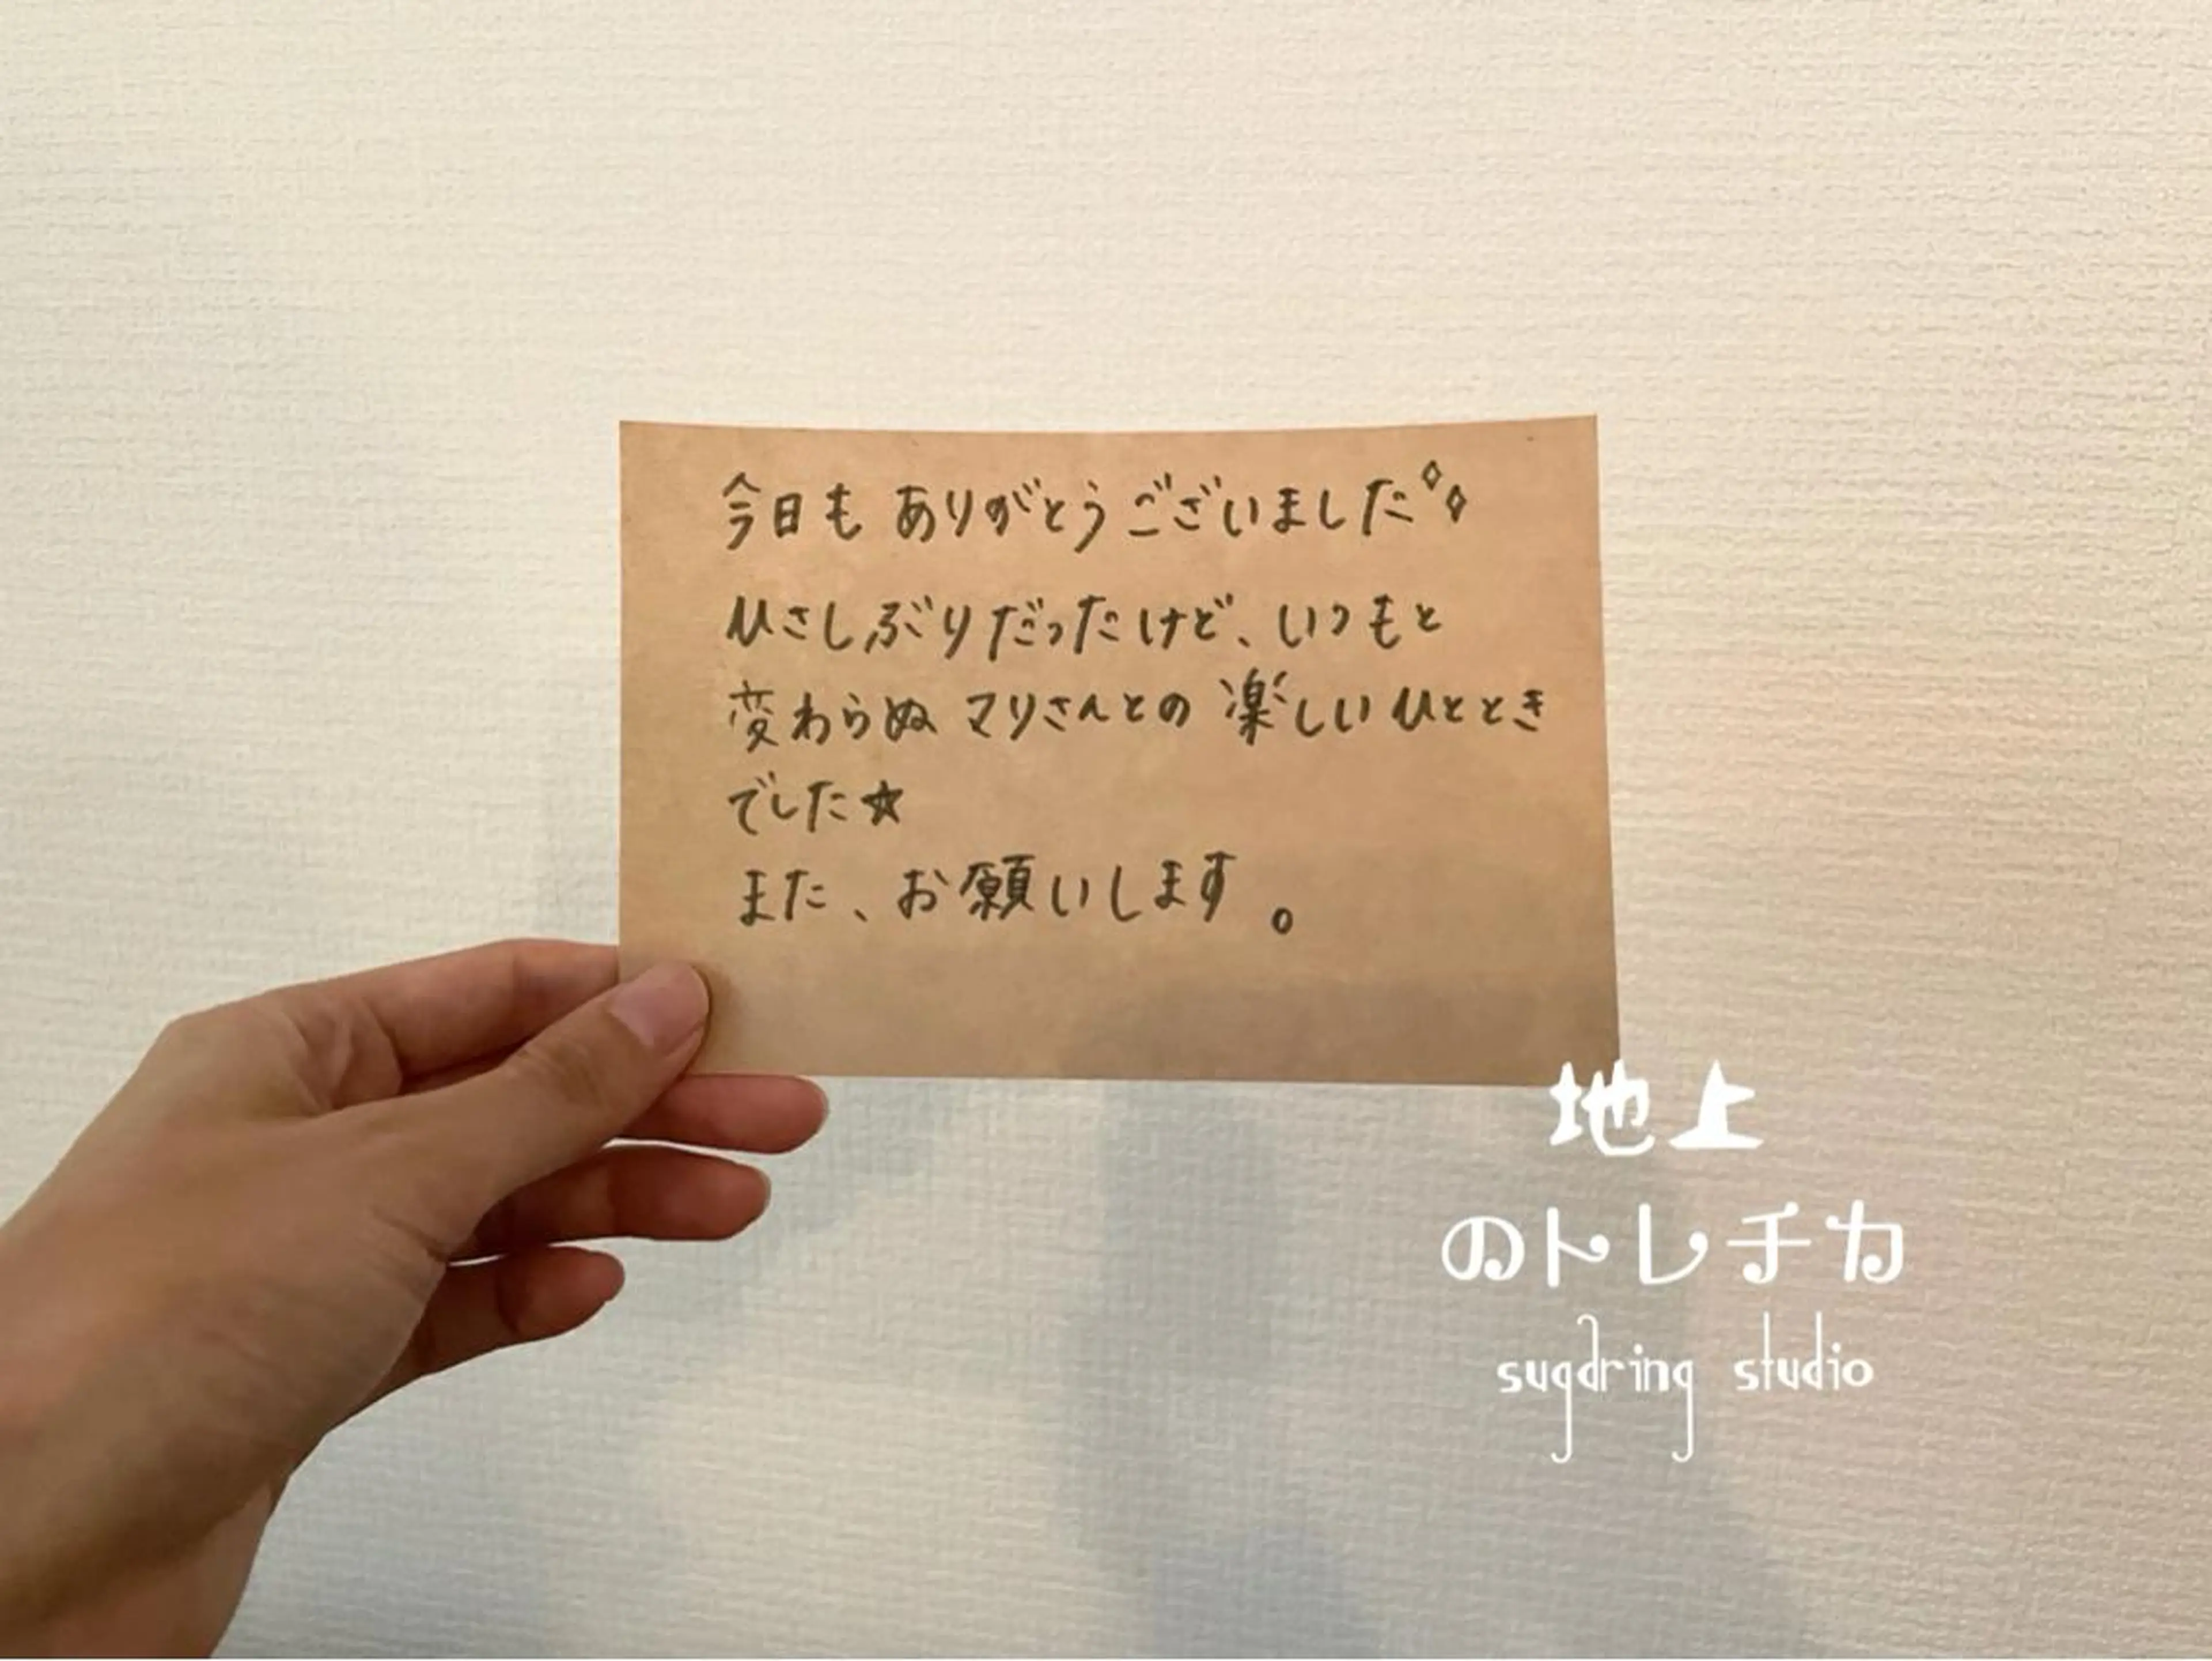 今日も ありがとうございました
ひさしぶりだったけど、いつもと
変わらぬ マリさんとの 楽しいひととき
でした★
また、お願いします。
地上
のトレチカ
sugdring studio